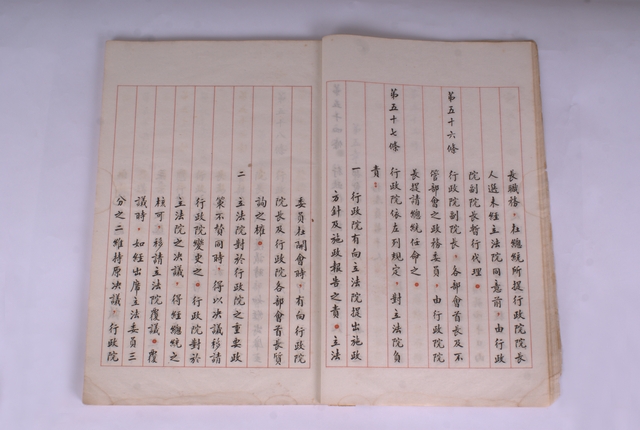 長職務，在總統所提行政院院長
人選未經立法院同意前，由行政
院副院長暫行代理。
第五十六條 行政院副院長，各部會首長及不
管部會之政務委員，由行政院院
長提請總統任命之
第五十七條 行政院依左列規定，對立法院負
責：
一 行政院有向立法院提出施政
方針及施政報告之責。立法
委員在開會時，有向行政院
院長及行政院各部會首長質
詢之權。
二 立法院對於行政院之重要政
策不贊同時，得以決議移請
行政院變更之。行政院對於
立法院之決議，得經總統之
核可，移請立法院覆議。覆
議時，如經出席立法委員三
分之二維持原決議，行政院